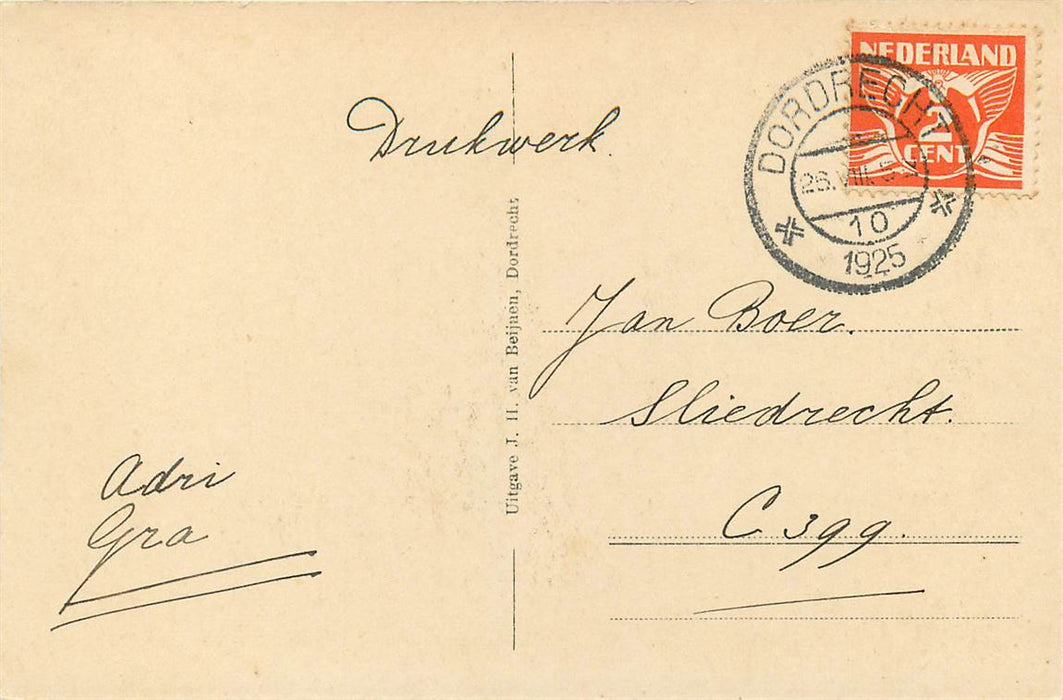 Drukwerk.
NEDERLAND
2
CENT
DORDRECHT
10
1925
Uitgave J. H. van Beijnen, Dordrecht.
Jan Boer.
Sliedrecht.
C 399.
Adri
Gra